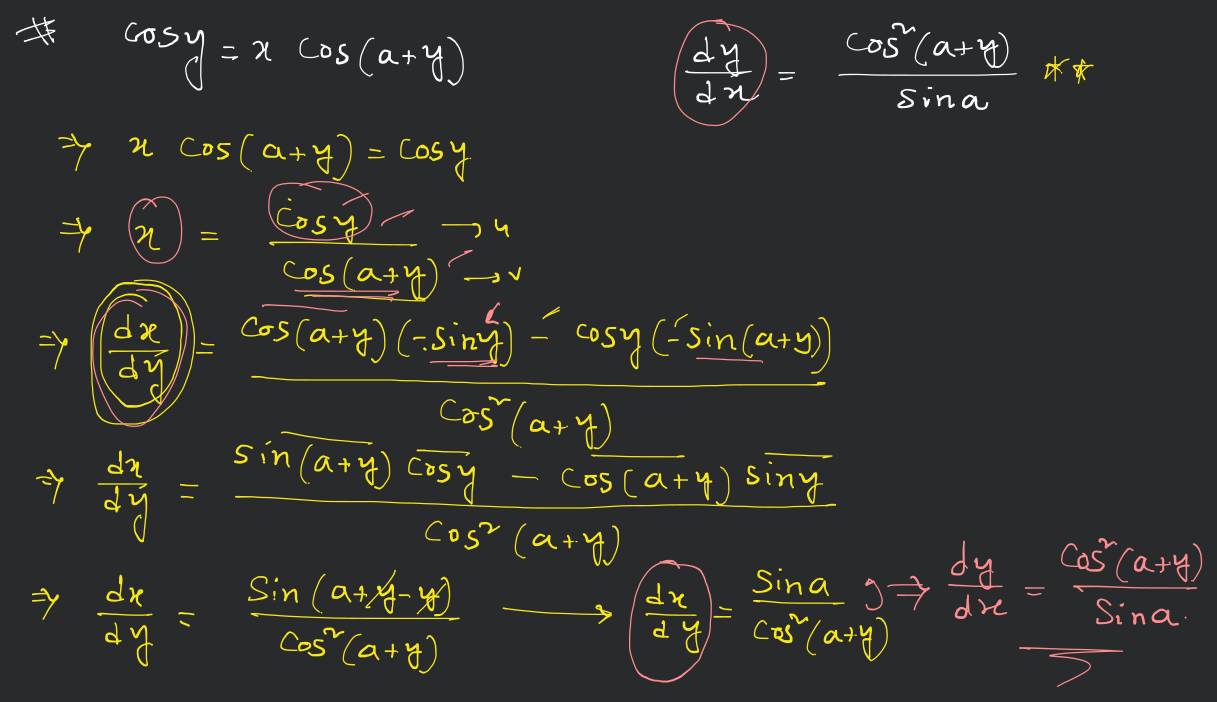 # cosy = x cos(a+y)
dy/dx = cos²(a+y) / sina **
⇒ x cos(a+y) = cosy
⇒ x = cosy / cos(a+y) → u → v
⇒ dx/dy = cos(a+y)(-siny) - cosy(-sin(a+y)) / cos²(a+y)
⇒ dx/dy = sin(a+y) cosy - cos(a+y) siny / cos²(a+y)
⇒ dx/dy = sin(a+y-y) / cos²(a+y) → dx/dy = sina / cos²(a+y) ⇒ dy/dx = cos²(a+y) / sina.